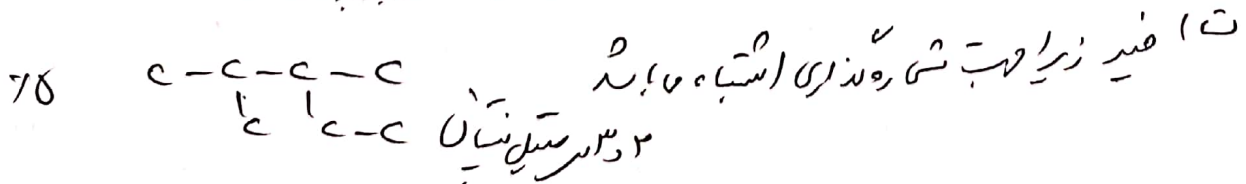 ت) خیر زیرا جهت شماره‌گذاری اشتباه می‌باشد
C - C - C - C
C C - C
۲ و ۳ دی متیل پنتان